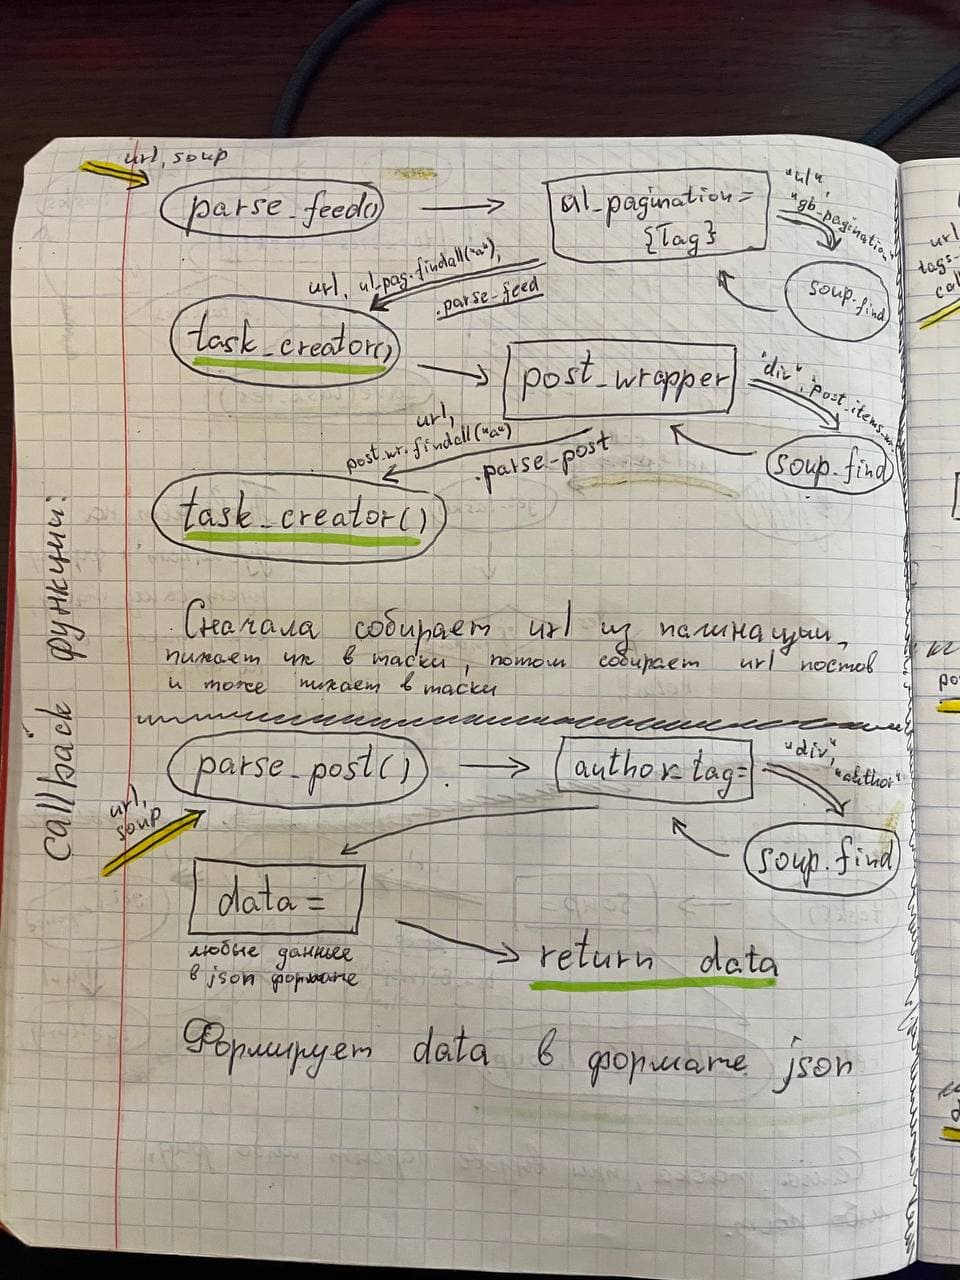 url, soup
parse_feed()
ul_pagination =
{Tag}
"ul",
"gb_pagination"
soup.find
url, ul_pag.findall("a"),
.parse_feed
task_creator()
post_wrapper
"div", "post_items_wr
soup.find
url,
post_wr.findall("a")
.parse-post
task_creator()
Callback функции:
Сначала собирает url из пагинации,
пихает их в таски, потом собирает url постов
и тоже пихает в таски
parse_post()
url,
soup
author_tag=
"div",
"author"
soup.find
data =
любые данные
в json формате
return data
Формирует data в формате json
url
tags-